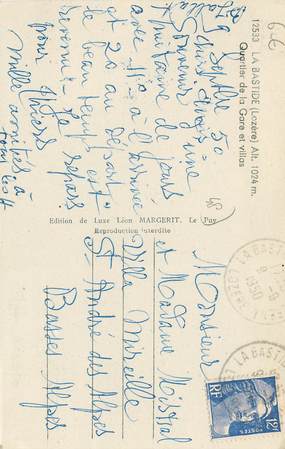 12533 LA BASTIDE (Lozère) Alt. 1024 m.
Quartier de la Gare et villas
9 Septbre 50
Souvenirs d'une
quinzaine de jours
avec 7° à l'arrivée
et 20 au départ
le beau temps est
revenu - Je repars
pour Thiers
Mille amitiés à
Edition de Luxe Léon MARGERIT, Le Puy
Reproduction interdite
Monsieur
et Madame Mistral
Villa Mireille
St André des Alpes
Basses Alpes
LA BASTIDE
1950
12F
RF
POSTES